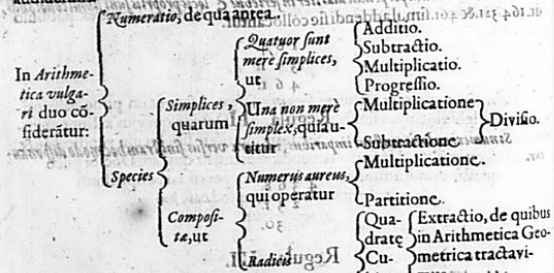 Numeratio, de qua antea.
In Arithme-
tica vulga-
ri duo cõ-
siderãtur:
Species
Simplices,
quarum
Quatuor sunt
merè simplices,
ut,
Additio.
Subtractio.
Multiplicatio.
Progressio.
Una non merè
simplex, quia u-
titur
Multiplicatione
Subtractione
Divisio.
Composi-
tæ, ut
Numerus aureus,
qui operatur
Multiplicatione.
Partitione.
Radicis
Qua-
dratę
Cu-
Extractio, de quibus
in Arithmetica Geo-
metrica tractavi-